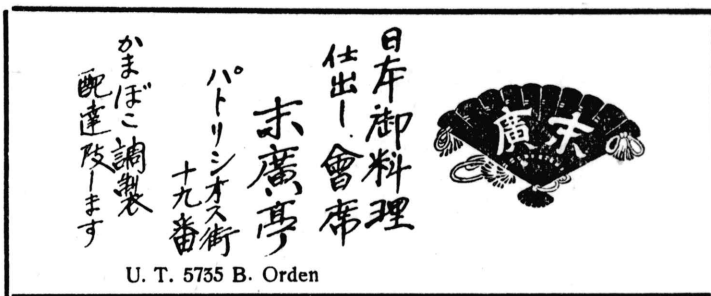 日本御料理
仕出し.會席
末廣亭
パトリシオス街
十九番
かまぼこ調製
配達致します
末廣
U. T. 5735 B. Orden